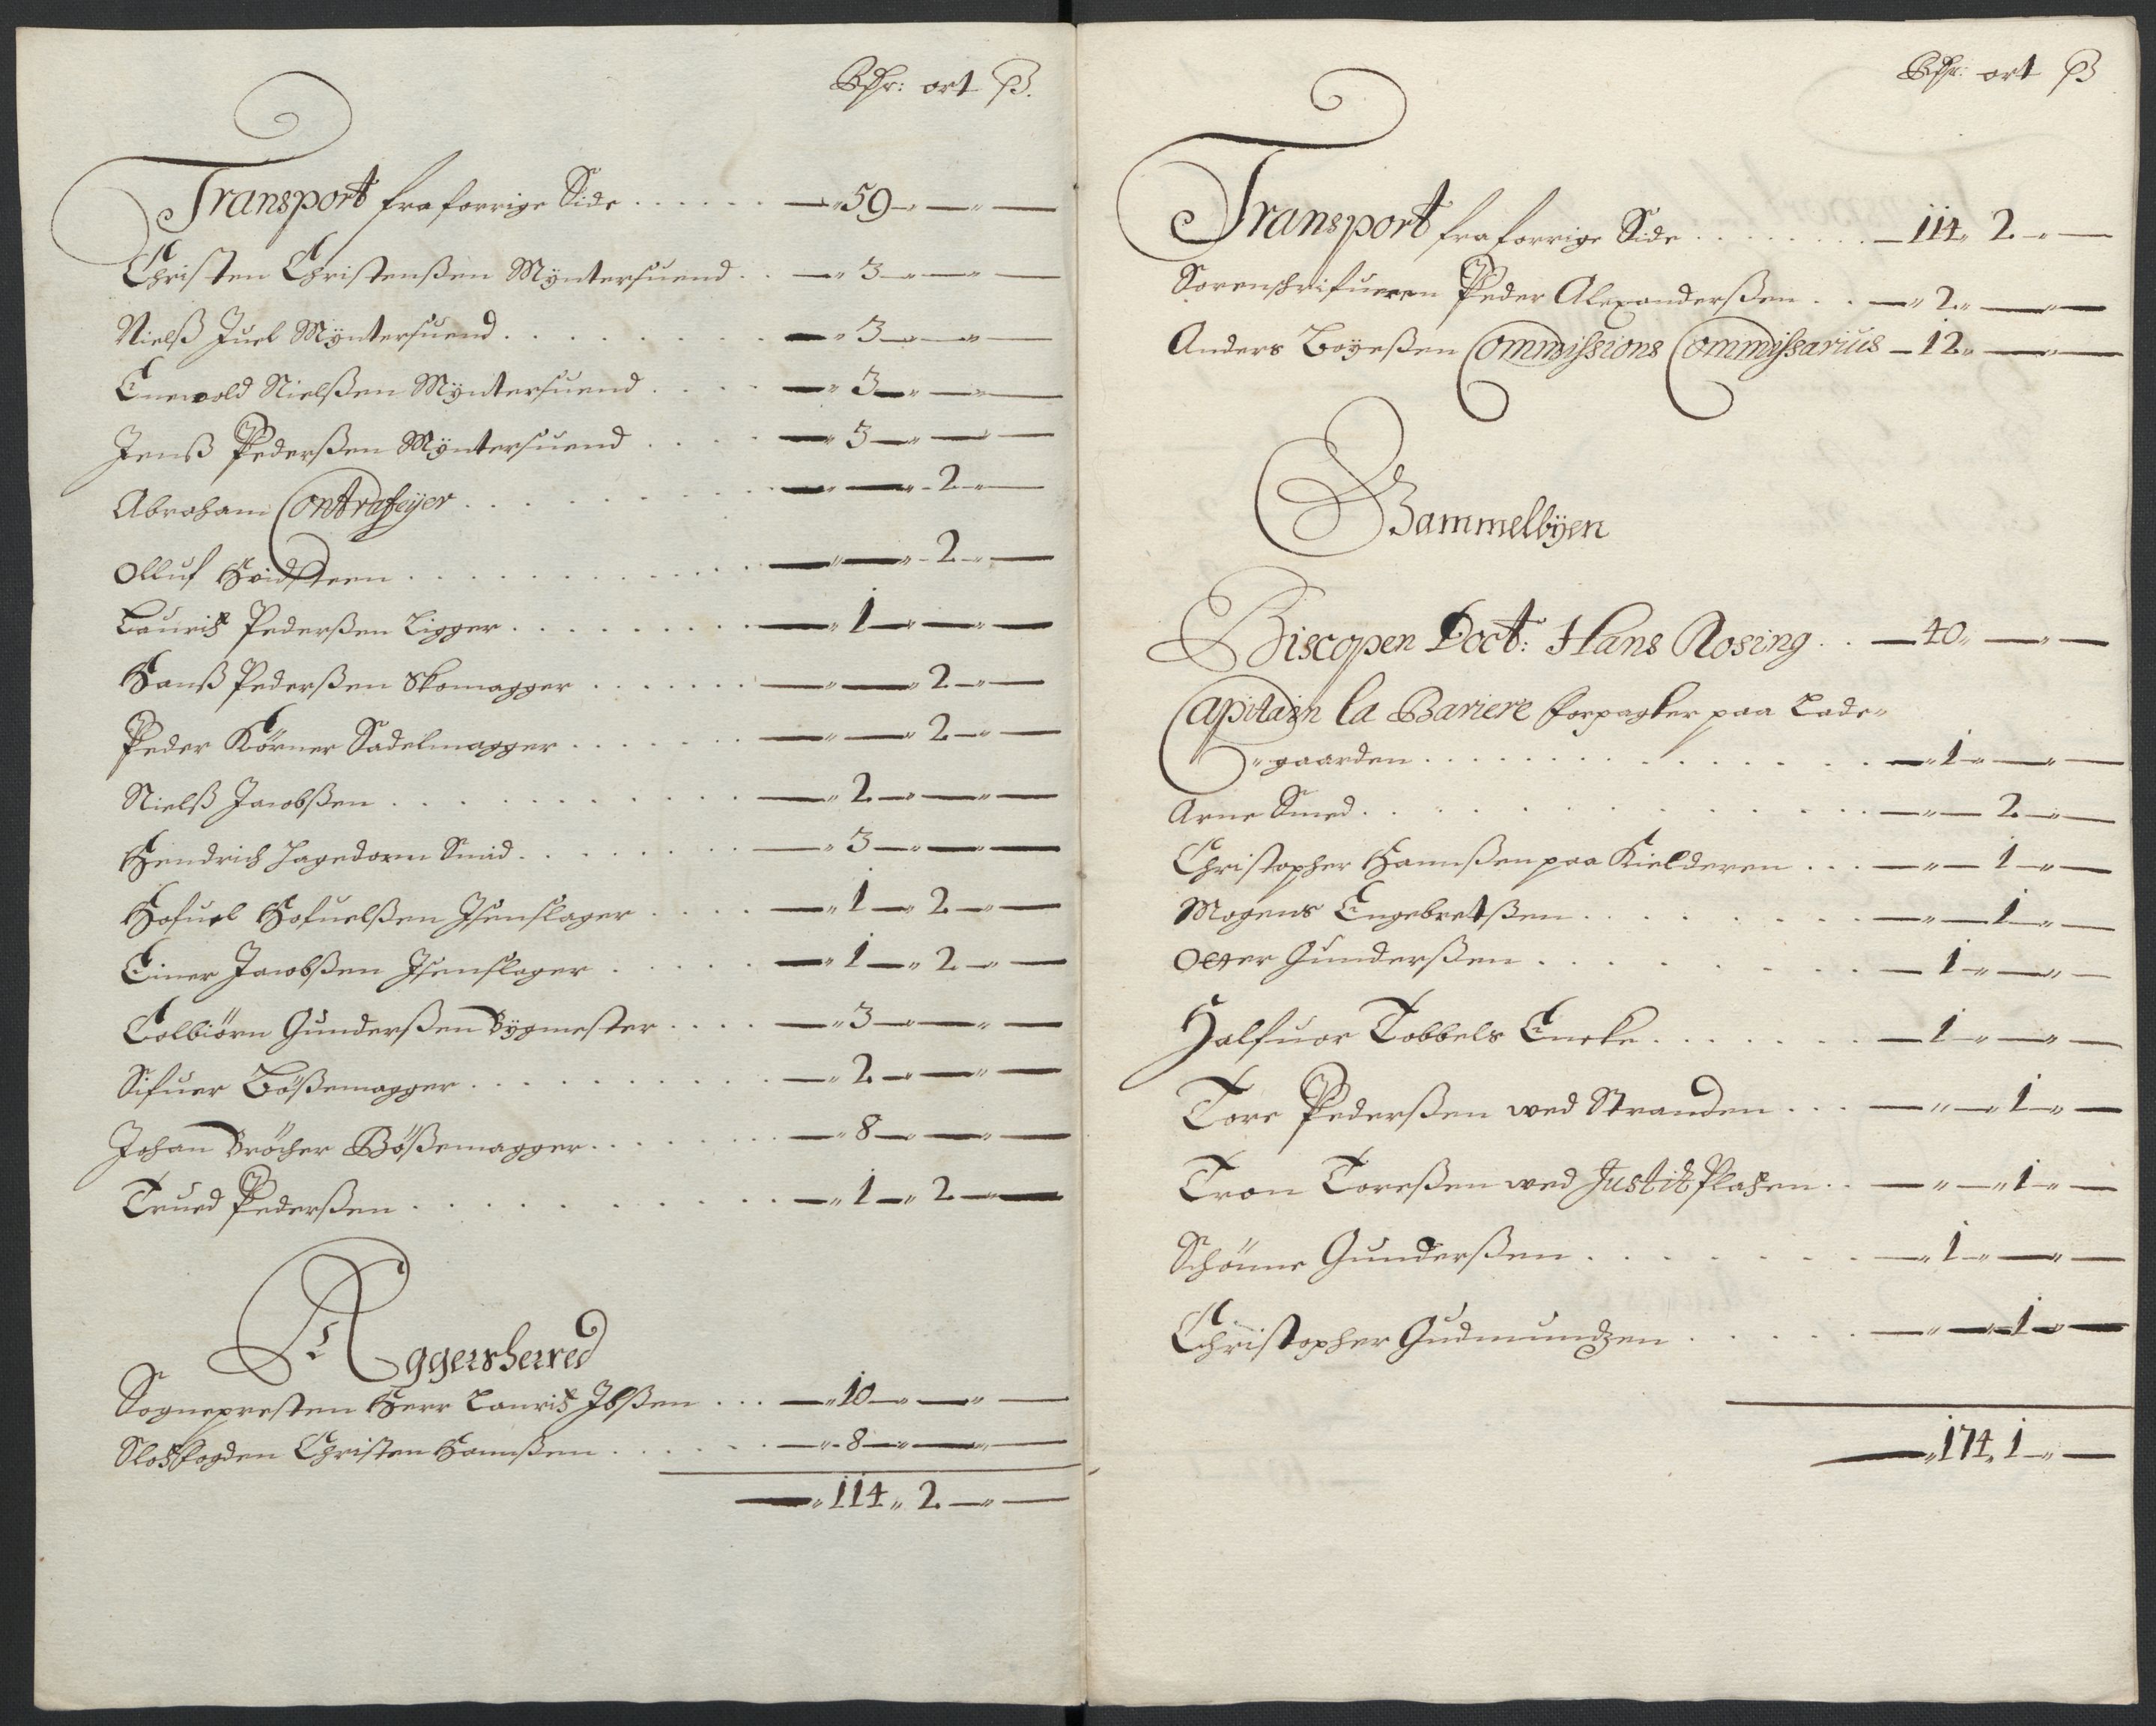 Rdr: ort ß.
Transport fra forrige Side . . . . . . 59
Christen Christenßen Mÿntersuend . . 3
Nielß Juel Mÿntersuend . . . . . . 3
Enevold Nielßen Mÿntersuend . . . . 3
Jenß Pederßen Mÿntersuend . . . . 3
Abraham Contrafeijer . . . . . . 2
Olluf Hvidsteen . . . . . . 2
Lauritz Pederßen Ligger . . . . . . 1
Hanß Pederßen Skomagger . . . . . . 2
Peder Körner Sadelmagger . . . . . . 2
Nielß Jacobßen . . . . . . 2
Hendrich Hagedorn Smid . . . . . . 3
Hofuel Hofuelßen Isenslager . . . . 1 2
Einer Jacobßen Isenslager . . . . . 1 2
Colbiörn Gunderßen Bÿgmester . . . . 3
Sifuer Bößemagger . . . . . . 2
Johan Bröcher Bößemagger . . . . . . 8
Trued Pederßen . . . . . . 1 2
Aggersherred
Sognepresten Herr Lauritz Ibßen . . . 10
Slotzfogden Christen Hanßen . . . . . . 8
114 2
Rdr: ort ß
Transport fra forrige Side . . . . . . 114 2
Sorenskrifueren Peder Alexanderßen . . 2
Anders Boÿeßen Commissions Commissarius 12
Gammelbÿen
Biscopen Doct: Hans Rosing . . 40
Capitain la Bariere forpagter paa Lade-
gaarden . . . . . . 1
Arne Smed . . . . . . 2
Christopher Hannßen paa Kielderen . . . 1
Mogens Engebretßen . . . . . . 1
Olter Gunderßen . . . . . . 1
Halfuor Tobbels Encke . . . . . . 1
Tore Pederßen wed Stranden . . . 1
Tron Toreßen wed Justitz Platzen . . 1
Schönne Gunderßen . . . . . . 1
Christopher Gudmundzen . . . . . . 1
174 1